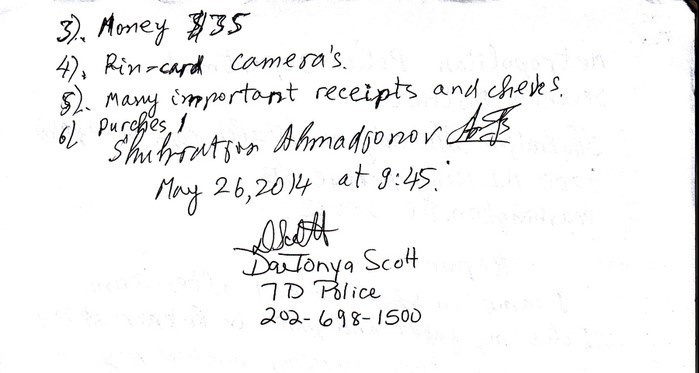 3). Money $35
4). Rin-card camera's.
5). Many important receipts and cheks.
6) purches,
Shuhratjon Ahmadjonov
May 26, 2014 at 9:45.
DScott
DaeTonya Scott
7D Police
202-698-1500